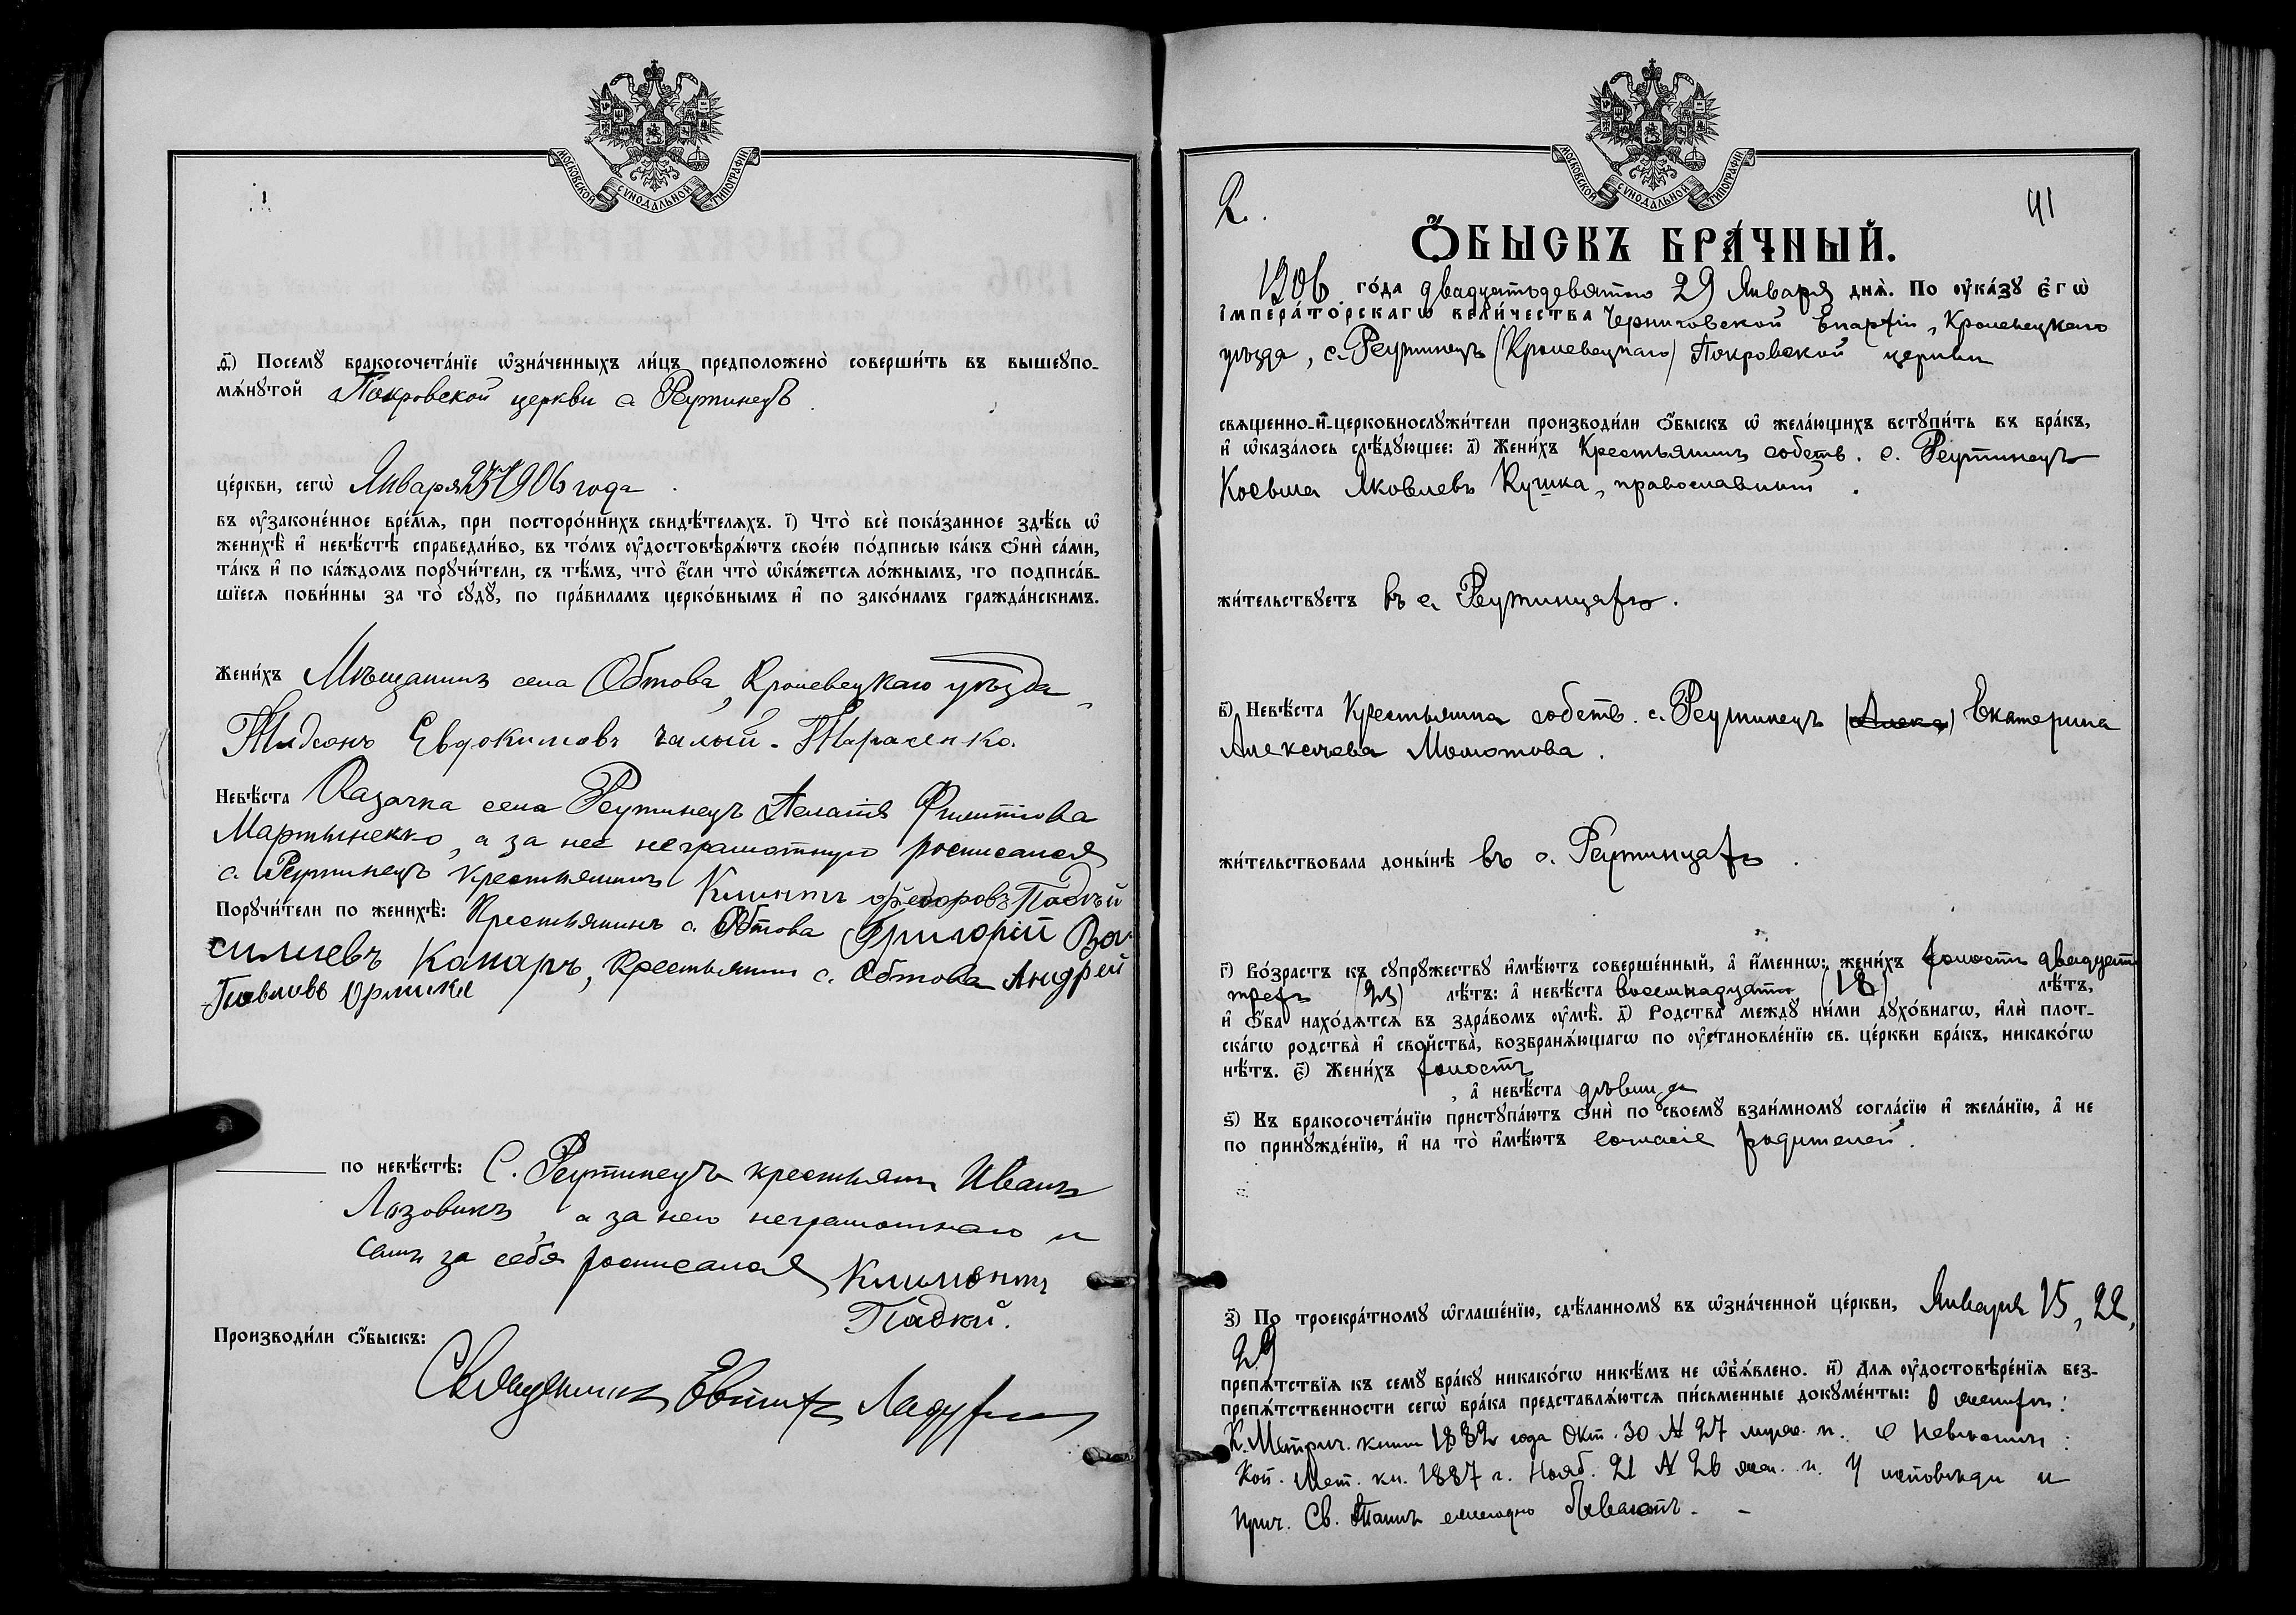 МОСКОВСКОЙ СУНОДАЛЬНОЙ ТИПОГРАФІИ
д҃) Посемꙋ бракосочета́нїе ѡ҆зна́ченныхъ ли́цъ предположено̀ соверши́ть въ вышеꙋпо-
мѧ́нꙋтой Покровской церкви с. Реутинецъ
це́ркви, сегѡ̀ Января 1906 года
въ ᲂу҆законе́нное вре́мѧ, при посторо́ннихъ свидѣ́телѧхъ. і҃) Что̀ всѐ пока́занное здѣ́сь ѡ҆
женихѣ̀ и҆ невѣ́стѣ справедли́во, въ то́мъ ᲂу҆достовѣрѧ́ютъ свое́ю по́дписью ка́къ ѻ҆нѝ са́ми,
та́къ и҆ по ка́ждомъ порꙋчи́тели, съ тѣ́мъ, что̀ є҆́сли что̀ ѡ҆ка́жетсѧ ло́жнымъ, то подписа́в-
шїесѧ пови́нны за то̀ сꙋдꙋ̀, по пра́виламъ церко́внымъ и҆ по зако́намъ гражда́нскимъ.
Жени́хъ Мѣщанинъ села Обтова, Кролевецкаго уѣзда,
Евдокимовъ Чалый-Тарасенко.
Невѣ́ста Казачка села Реутинецъ Пелагія Филиппова
Мартыненко, а за нее неграмотную росписался
с. Реутинецъ крестьянинъ Климентъ Федоровъ
Порꙋчи́тели по женихѣ̀: Крестьянинъ с. Обтова Григорій Ва-
силиевъ Какаръ, Крестьянинъ с. Обтова Андрей
Павловъ Орлики
по невѣ́стѣ: С. Реутинецъ крестьян. Иванъ
Лозовикъ, а за него неграмотнаго и
самъ за себя росписался Климентъ
Гладкій.
Производи́ли ѻ҆́быскъ:
Священникъ Евтихій
МОСКОВСКОЙ СУНОДАЛЬНОЙ ТИПОГРАФІИ
2. 41
Ѻ҆́БЫСКЪ БРА́ЧНЫЙ.
1906 го́да двадцатьдевятаго 29 Января днѧ̀. По ᲂу҆ка́зꙋ є҆гѡ̀
і҆мпера́торскагѡ вели́чества Черниговской Епархіи, Кролевецкаго
уѣзда, с. Реутинецъ (Кролевецкаго) Покровской церкви
свѧщенно-и҆-церковнослꙋжи́тели производи́ли ѻ҆́быскъ ѡ҆ жела́ющихъ встꙋпи́ть въ бра́къ,
и҆ ѡ҆каза́лось слѣ́дꙋющее: а҃) Жени́хъ Крестьянинъ собств. с. Реутинецъ
Косьма Яковлевъ Кушка, православный.
жи́тельствꙋетъ въ с. Реутинцахъ.
в҃) Невѣ́ста Крестьянка собств. с. Реутинецъ (Алекс) Екатерина
Алексѣева Молотова.
жи́тельствовала доны́нѣ въ с. Реутинцахъ.
г҃) Во́зрастъ къ сꙋпрꙋ́жествꙋ и҆мѣ́ютъ соверше́нный, а҆ и҆́меннѡ: жени́хъ холостъ двадцати
трехъ (23) лѣ́тъ: а҆ невѣ́ста восемнадцати (18) лѣ́тъ,
и҆ ѻ҆́ба нахо́дѧтсѧ въ здра́вомъ ᲂу҆мѣ̀. д҃) Родства̀ междꙋ̀ ни́ми дꙋхо́внагѡ, и҆лѝ плот-
ска́гѡ родства̀ и҆ сво́йства, возбранѧ́ющагѡ по ᲂу҆становле́нїю св. це́ркви бра́къ, никако́гѡ
нѣ́тъ. є҃) Жени́хъ холостъ
, а҆ невѣ́ста дѣвица
ѕ҃) Къ бракосочета́нїю пристꙋпа́ютъ ѻ҆нѝ по своемꙋ̀ взаи́мномꙋ согла́сїю и҆ жела́нїю, а҆ не
по принꙋжде́нїю, и҆ на то̀ и҆мѣ́ютъ согласіе родителей.
з҃) По троекра́тномꙋ ѡ҆глаше́нїю, сдѣ́ланномꙋ въ ѡ҆зна́ченной це́ркви, Января 15, 22,
29
препѧ́тствїѧ къ семꙋ̀ бра́кꙋ никако́гѡ никѣ́мъ не ѡ҆б̾ѧ́влено. и҃) Длѧ ᲂу҆достовѣре́нїѧ без-
препѧ́тственности сегѡ̀ бра́ка представлѧ́ютсѧ пи́сьменные докꙋме́нты: О женихѣ:
К. Метрич. книги 1882 года Окт. 30 № 27 муж. п. О невѣстѣ:
Коп. Мет. кн. 1887 г. Нояб. 21 № 26 жен. п. У исповѣди и
прич. Св. Таинъ ежегодно бываютъ. –